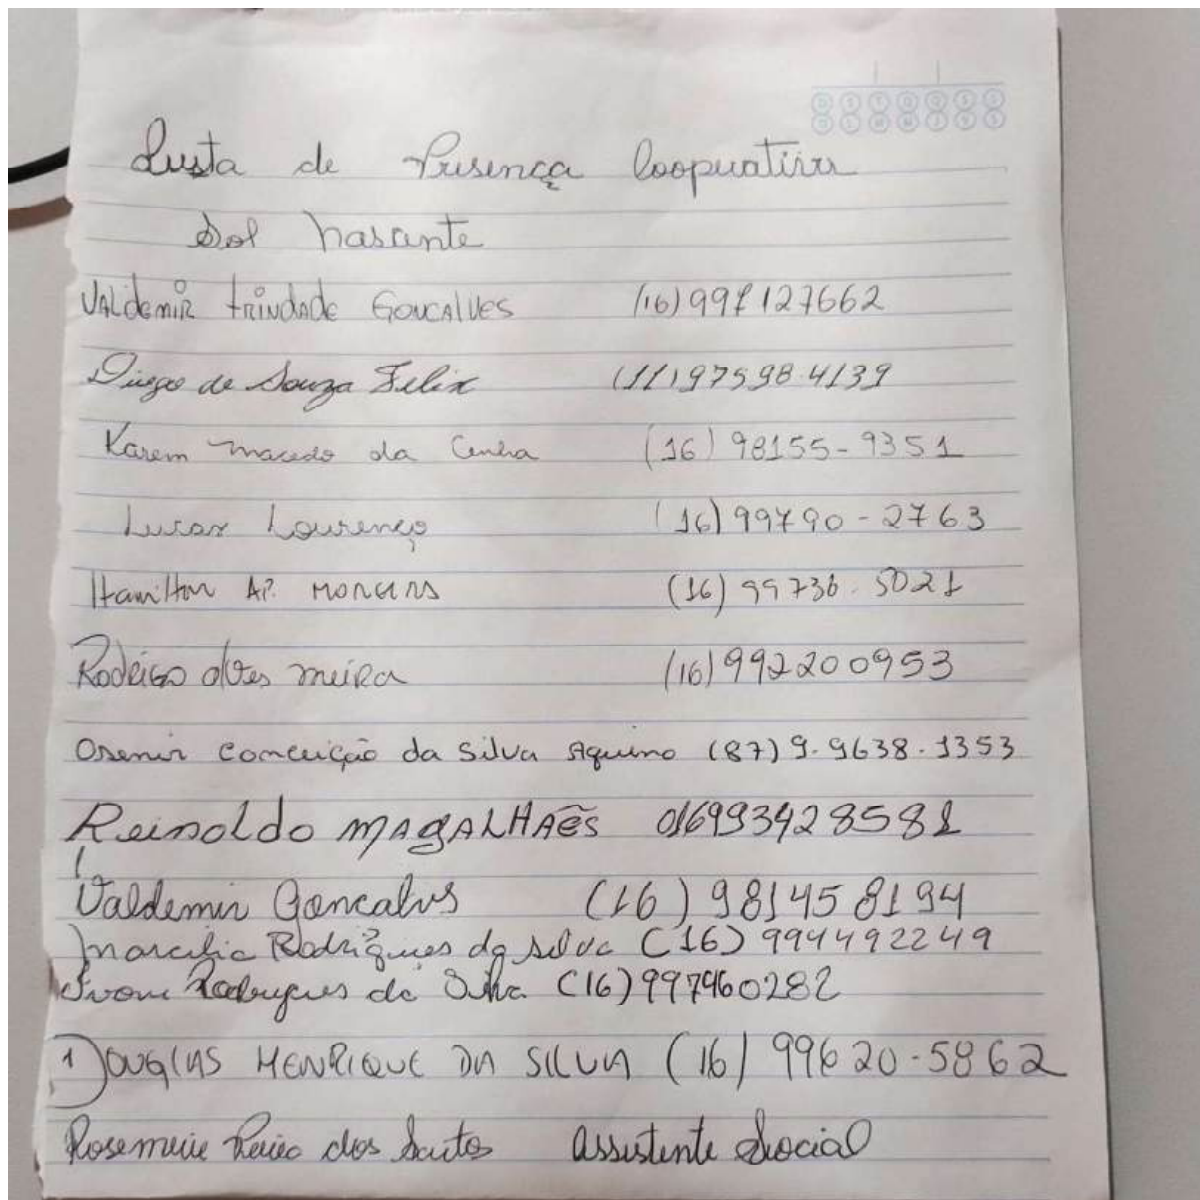 Lista de Presença Cooperativa
Sol Nascente
Valdemir Trindade Goncalves (16) 991127662
Diego de Souza Felix (11) 97598.4139
Karem Macedo da Cunha (16) 98155-9351
Lucas Lourenço (16) 99790-2763
Hamilton Ap. (16) 99736.5021
Rodrigo Alves Meira (16) 992200953
Osenir Conceição da Silva Aquino (87) 9.9638.1353
Reinoldo MAGALHAẽS 016993428581
Valdemir Goncalves (16) 981458194
Marcilia Rodrigues da Silva (16) 994492249
Ivone Rodrigues da Silva (16) 997960282
DOUGLAS HENRIQUE DA SILVA (16) 99620-5862
Rosemeire dos Santos Assistente Social